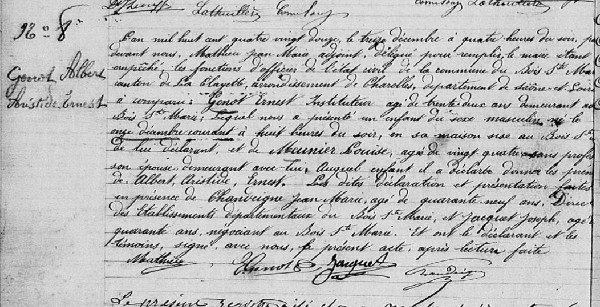 Lathuillière
Lathuillière
N° 8
Genot Albert
Aristide, Ernest
L'an mil huit cent quatre vingt douze, le treize décembre à quatre heures du soir, par
devant nous, Mathieu Jean Marie adjoint, délégué pour remplir, le maire étant
empêché, les fonctions d'officier de l'état civil de la commune du Bois Ste Marie
canton de La Clayette, arrondissement de Charolles, département de Saône-et-Loire
a comparu: Genot Ernest Instituteur agé de trente deux ans demeurant au
Bois Ste Marie; lequel nous a présenté un enfant du sexe masculin né le
onze décembre courant à huit heures du soir, en sa maison sise au Bois Ste
de lui déclarant, et de Meunier Louise, agée de vingt quatre ans profes
son épouse demeurant avec lui, Auquel enfant il a déclaré donner les prénoms
de Albert, Aristide, Ernest. Les dites déclaration et présentation faites
en présence de Jean Marie, agé de quarante neuf ans, Direc
des Etablissements départementaux du Bois Ste Marie, et Jacquet Joseph, agé
quarante ans, négociant au Bois Ste Marie. Et ont le déclarant et les
témoins, signé avec nous, le présent acte, après lecture faite
Mathieu Genot Jacquet
Le présent registre